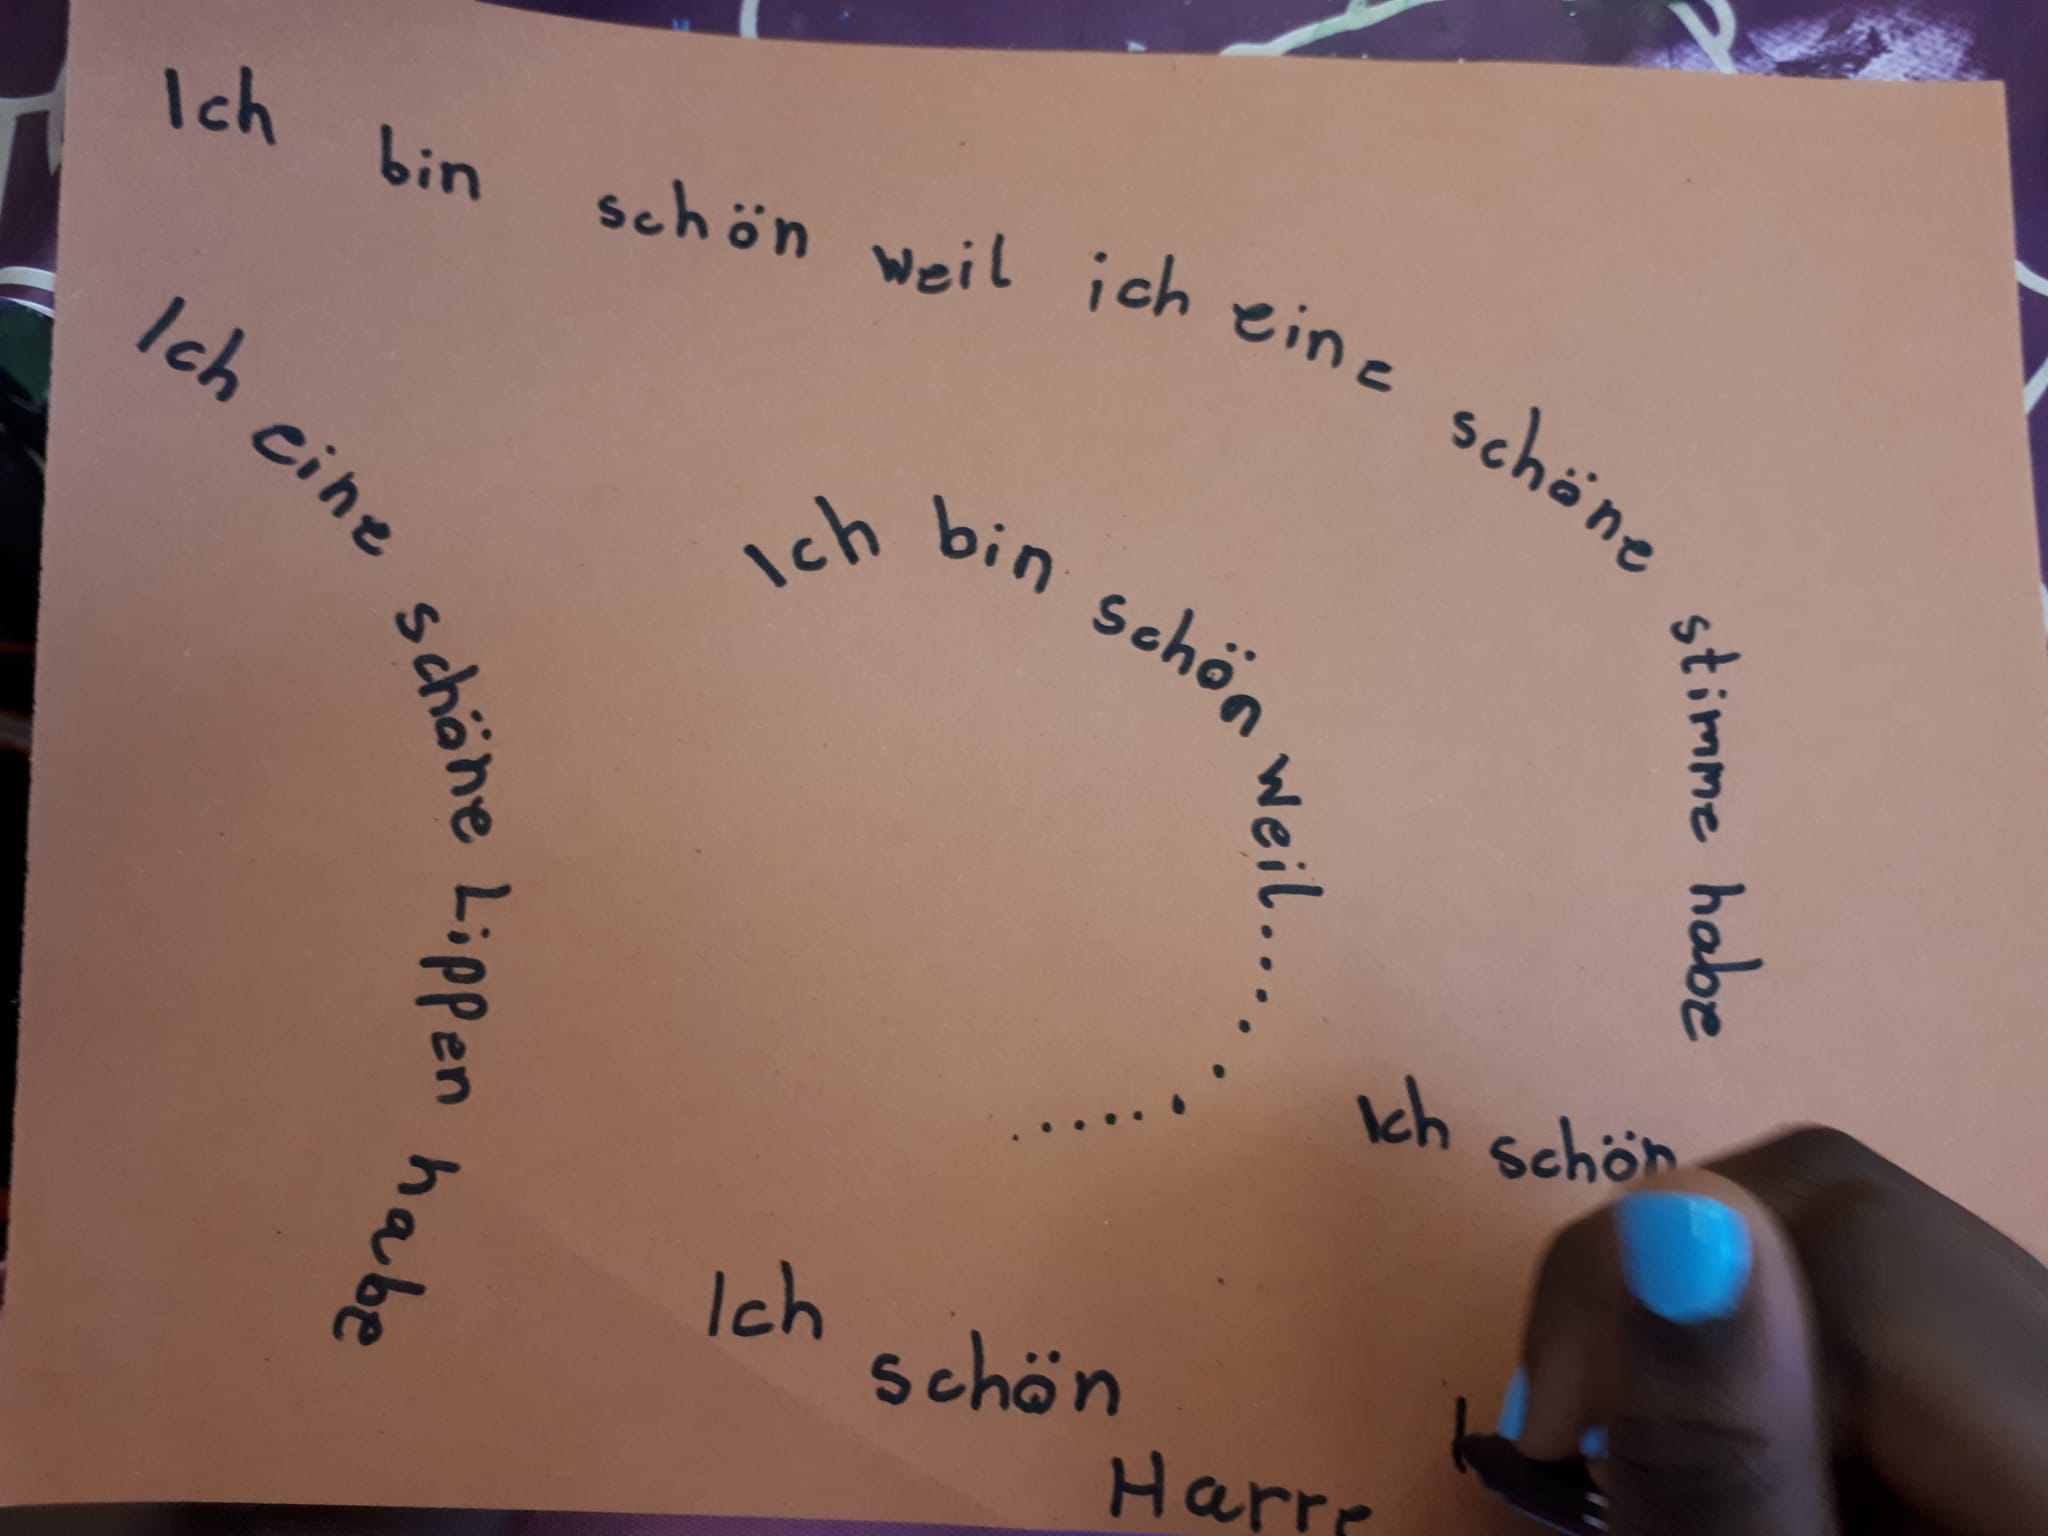 Ich bin schön weil ich eine schöne stimme habe
Ich eine schöne Lippen habe
Ich bin schön weil..........
Ich schön
Ich schön
Harre